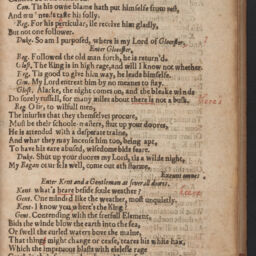 Gon. Tis his owne blame hath put himselfe from rest,
And must needs tast his folly.
Reg. For his perticular, ile receiue him gladly,
But not one follower.
Duke. So am I purposed, where is my Lord of Gloster,
Enter Gloster,
Reg. Followed the old man forth, he is return'd.
Glost. The King is in high rage, and will I know not whether.
Reg. Tis good to giue him way, he leads himselfe.
Gon. My Lord entreat him by no meanes to stay.
Glost. Alacke, the night comes on, and the bleake winds
Do sorely russell, for many miles about there is not a bush.
Reg. O sir, to wilfull men,
The iniuries that they themselues procure,
Must be their schoole-masters, shut vp your doores,
He is attended with a desperate traine,
And what they may incense him too, being apt,
To haue his eare abused, wisedome bids feare.
Duke. Shut vp your doores my Lord, tis a wilde night,
My Regan counsels well, come out ath storme.
Exeunt omnes.
Enter Kent and a Gentleman at seuerall doores.
Kent what's heare beside foule weather?
Gent. One minded like the weather, most vnquietly.
Kent. I know you where's the King?
Gent. Contending with the fretfull Element,
Bids the winde blow the earth into the sea,
Or swell the curled waters boue the maine,
That things might change or cease, teares his white haire,
Which the impetuous blasts with eielesse rage